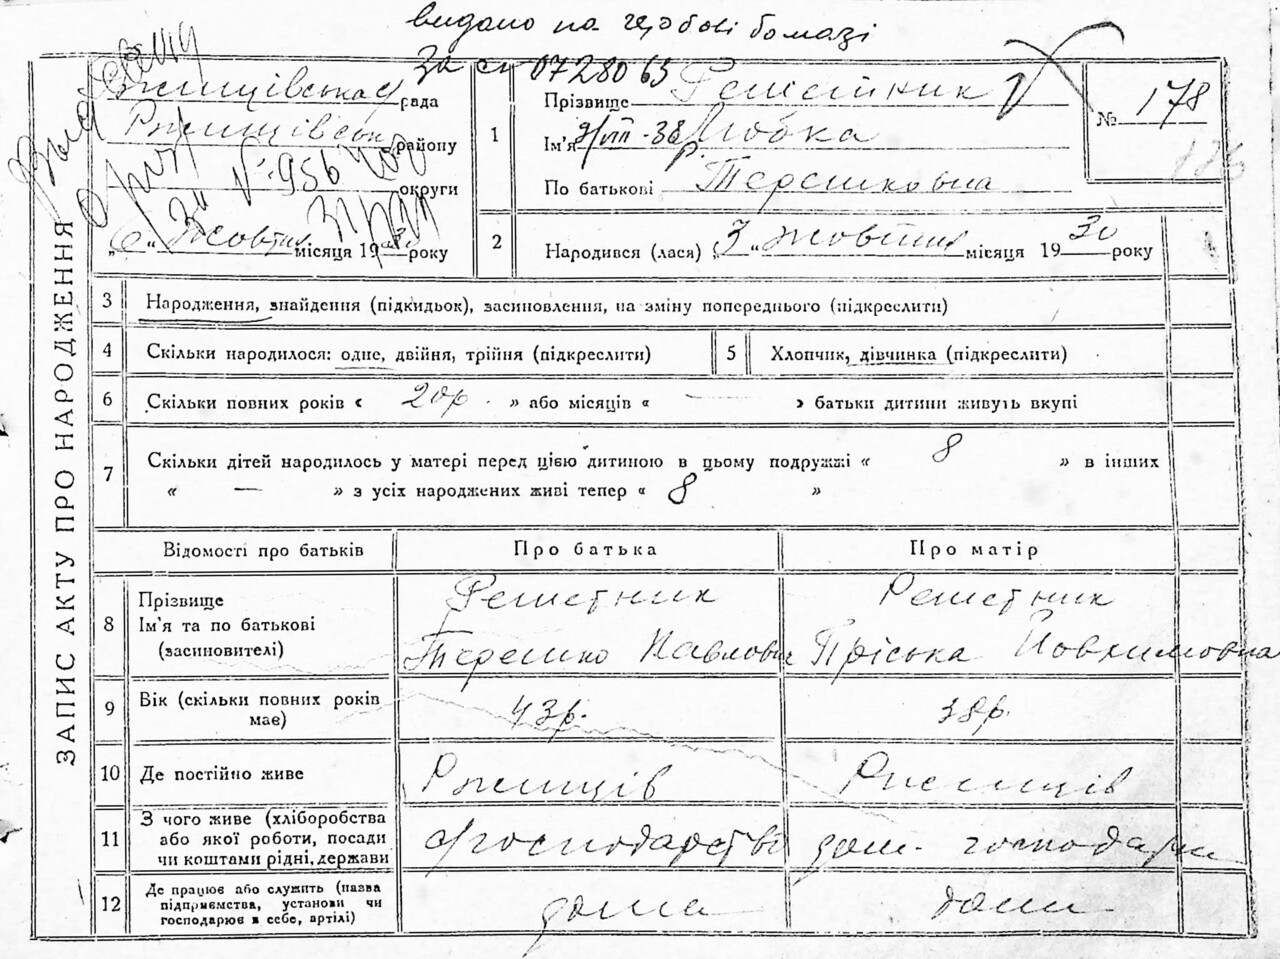 видано на гербові бомазі
за сп 0728065
Ржищівська рада
Ржищівськ району
округи
„6“ Жовтня місяця 1930 року
31/V
1
Прізвище Решетник
Ім'я Любка
9/VIII-38 р.
По батькові Терешковна
№ 178
2
Народився (лася) „3“ жовтня місяця 1930 року
ЗАПИС АКТУ ПРО НАРОДЖЕННЯ
3 Народження, знайдення (підкидьок), засиновлення, на зміну попереднього (підкреслити)
4 Скільки народилося: одне, двійня, трійня (підкреслити)
5 Хлопчик, дівчинка (підкреслити)
6 Скільки повних років « 20р. » або місяців « — » батьки дитини живуть вкупі
7 Скільки дітей народилось у матері перед цією дитиною в цьому подружжі « 8 » в інших
« — » з усіх народжених живі тепер « 8 »
Відомості про батьків
Про батька
Про матір
8 Прізвище
Ім'я та по батькові
(засиновителі)
Решетник
Терешко Павлович
Решетник
Пріська Йовхимовна
9 Вік (скільки повних років
має)
43р.
38р.
10 Де постійно живе
Ржищів
Ржищів
11 З чого живе (хліборобства
або якої роботи, посади
чи коштами рідні, держави
господарство
дом. господарки
12 Де працює або служить (назва
підприємства, установи чи
господарює в себе, артілі)
дома
дома